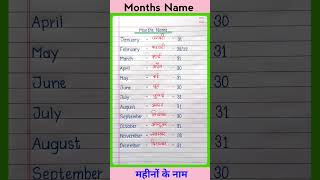 Months Name
Months Name
January - जनवरी - 31
February - फरवरी - 28/29
March - मार्च - 31
April - अप्रैल - 30
May - मई - 31
June - जून - 30
July - जुलाई - 31
August - अगस्त - 31
September - सितम्बर - 30
October - अक्टूबर - 31
November - नवम्बर - 30
December - दिसम्बर - 31
महीनों के नाम
April 30
May 31
June 30
July 31
August 31
September 30